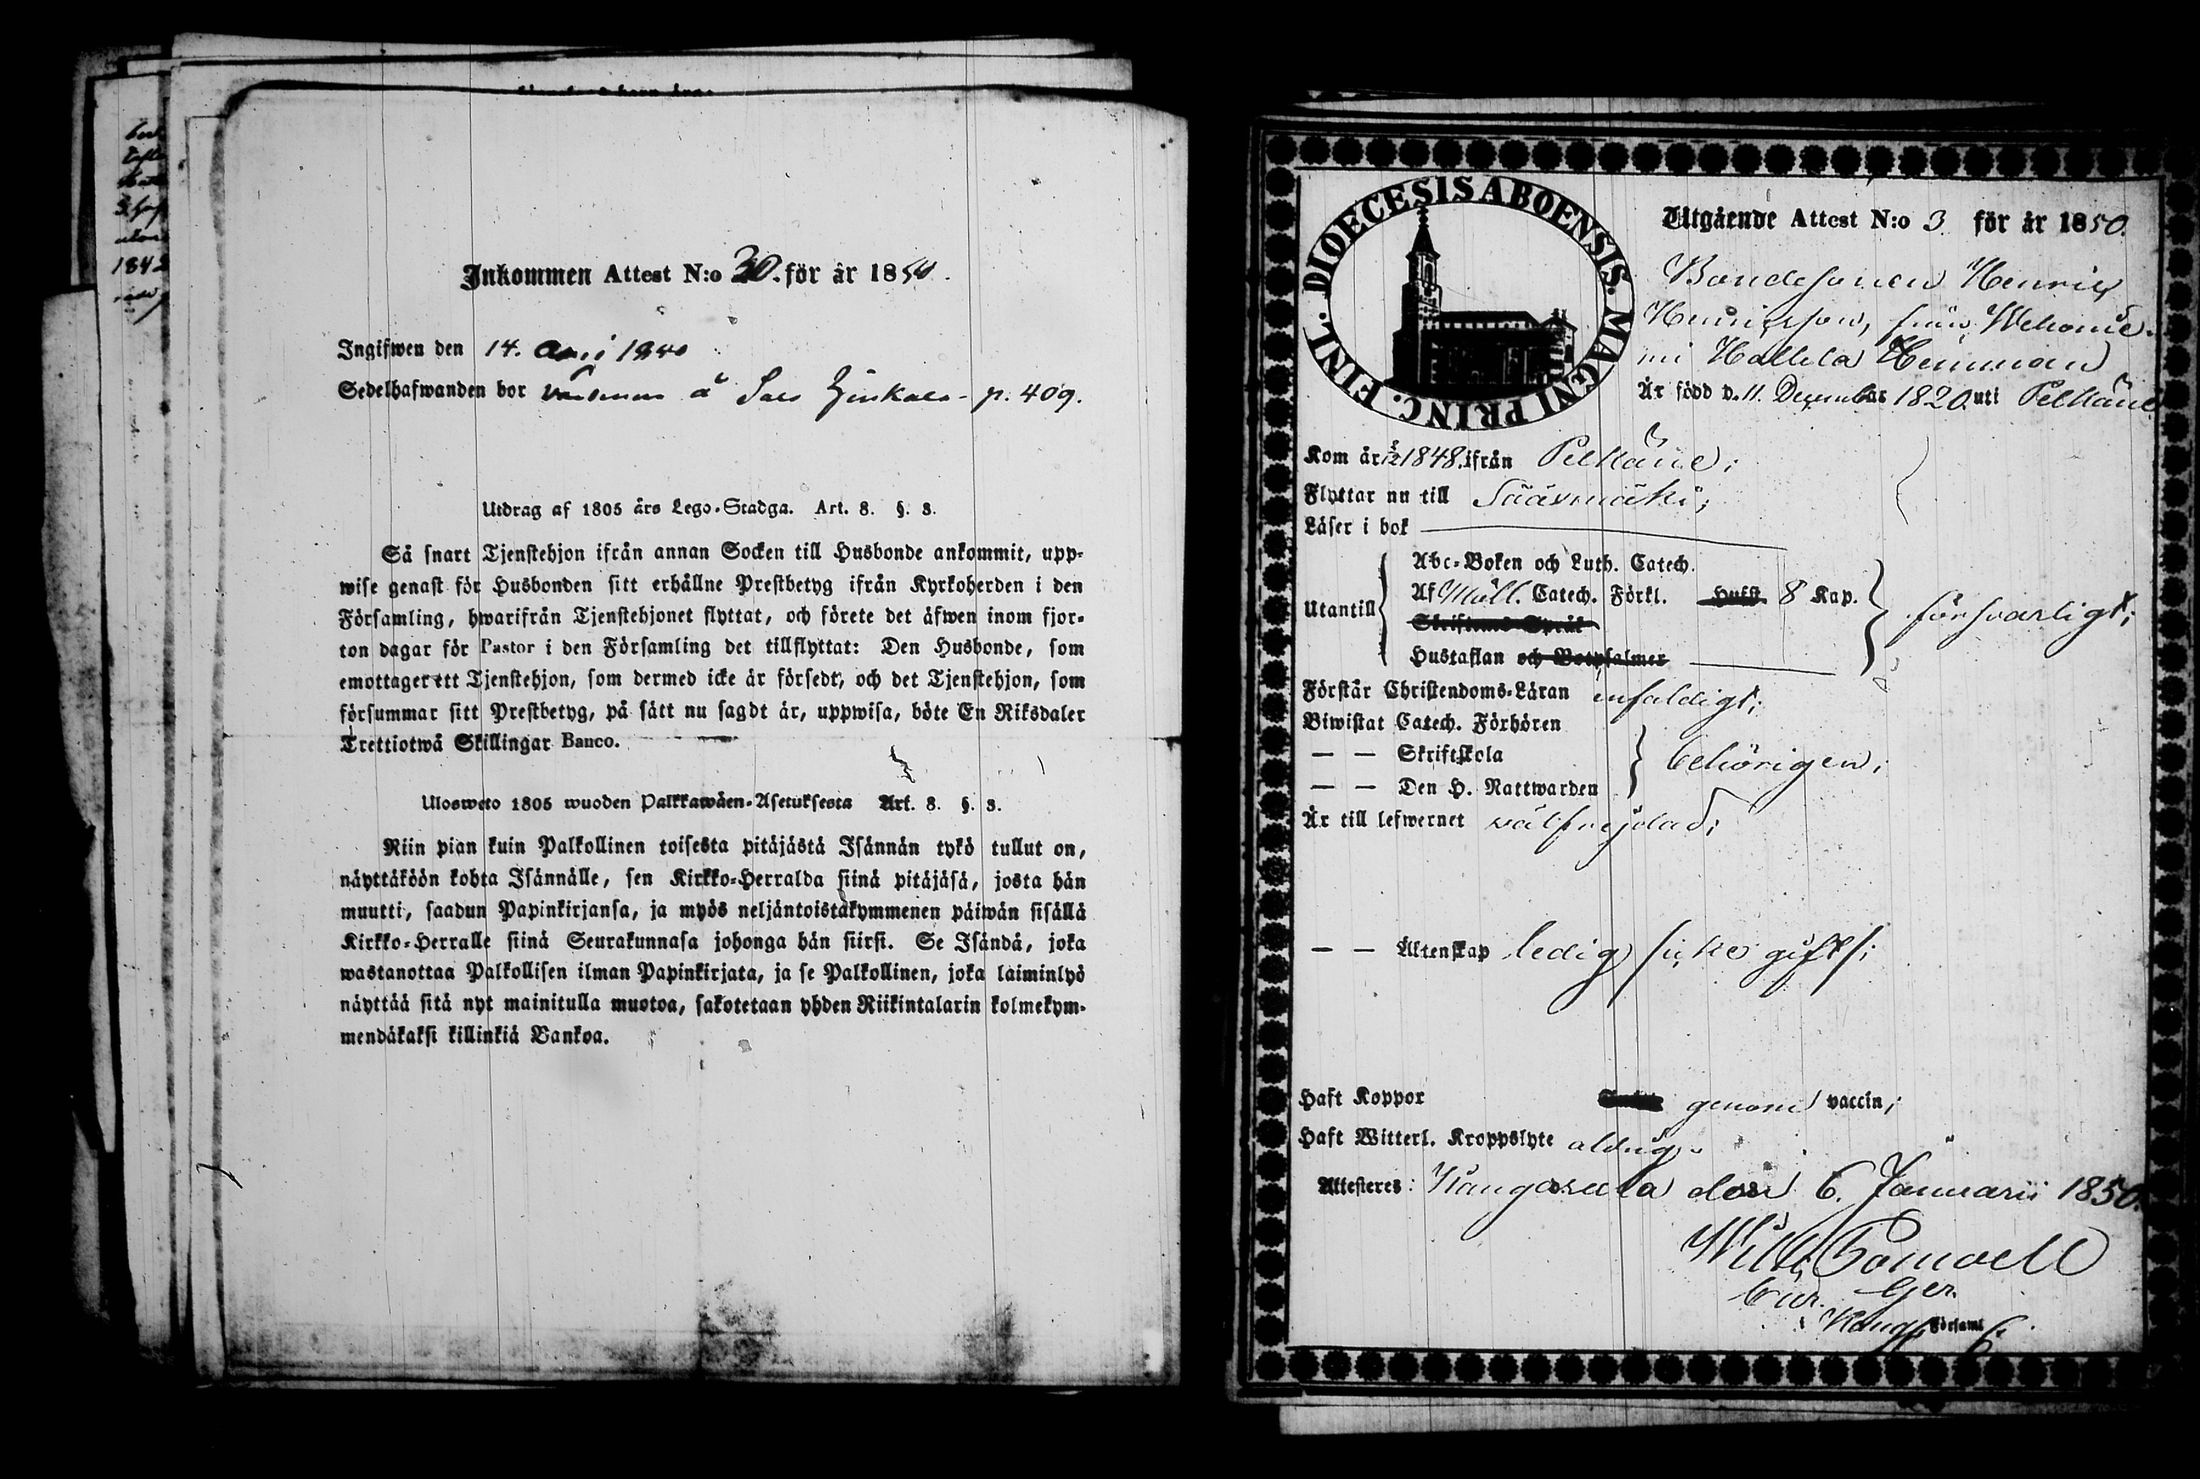 Inkommen Attest N:o 30. för år 1850.
Ingifwen den 14. 1850
Sedelhafwanden bor å p. 409.
Utdrag af 1805 års Lego-Stadga. Art. 8. §. 3.
Så snart Tjenstehjon ifrån annan Socken till Husbonde ankommit, upp-
wise genast för Husbonden sitt erhållne Prestbetyg ifrån Kyrkoherden i den
Församling, hwarifrån Tjenstehjonet flyttat, och förete det äfwen inom fjor-
ton dagar för Pastor i den Församling det tillflyttat: Den Husbonde, som
emottager ett Tjenstehjon, som dermed icke är försedt, och det Tjenstehjon, som
försummar sitt Prestbetyg, på sätt nu sagdt är, uppwisa, böte En Riksdaler
Trettiotwå Skillingar Banco.
Ulosweto 1805 wuoden Palkkawäen-Asetuksesta Art. 8. §. 3.
Niin pian kuin Palkollinen toisesta pitäjästä Isännän tykö tullut on,
näyttäköön kohta Isännälle, sen Kirkko-Herralda siinä pitäjäsä, josta hän
muutti, saadun Papinkirjansa, ja myös neljäntoistakymmenen päiwän sisällä
Kirkko-Herralle siinä Seurakunnasa johonga hän siirsi. Se Isändä, joka
wastanottaa Palkollisen ilman Papinkirjata, ja se Palkollinen, joka laiminlyö
näyttää sitä nyt mainitulla muotoa, sakotetaan yhden Riikintalarin kolmekym-
mendäkaksi killinkiä Bankoa.
1842
DIOECESIS ABOENSIS. MAGNI PRINC. FINL.
Utgående Attest N:o 3 för år 1850.
Bondesonen Henrik
Henriksson, från Wehonie-
mi Hallila Hemman
Är född d. 11. December 1820 uti Pelkäne
Kom år 1848. ifrån Pelkäne;
Flyttar nu till Sääxmäki;
Läser i bok
Abc-Boken och Luth. Catech.
Utantill Af Möll. Catech. Förkl. Hufst. 8 Kap. försvarligt;
Skriftenes Språk
Hustaflan och Botpsalmer
Förstår Christendoms-Läran enfaldigt;
Biwistat Catech. Förhören
— — Skriftskola behörigen;
— — Den H. Nattwarden
Är till lefwernet välfrejdad;
— — Äktenskap ledig (icke gift);
Haft Koppor genom vaccin;
Haft Witterl. Kroppslyte aldrig.
Attesteres: Kangasala den 6. Januarii 1850.
Församl